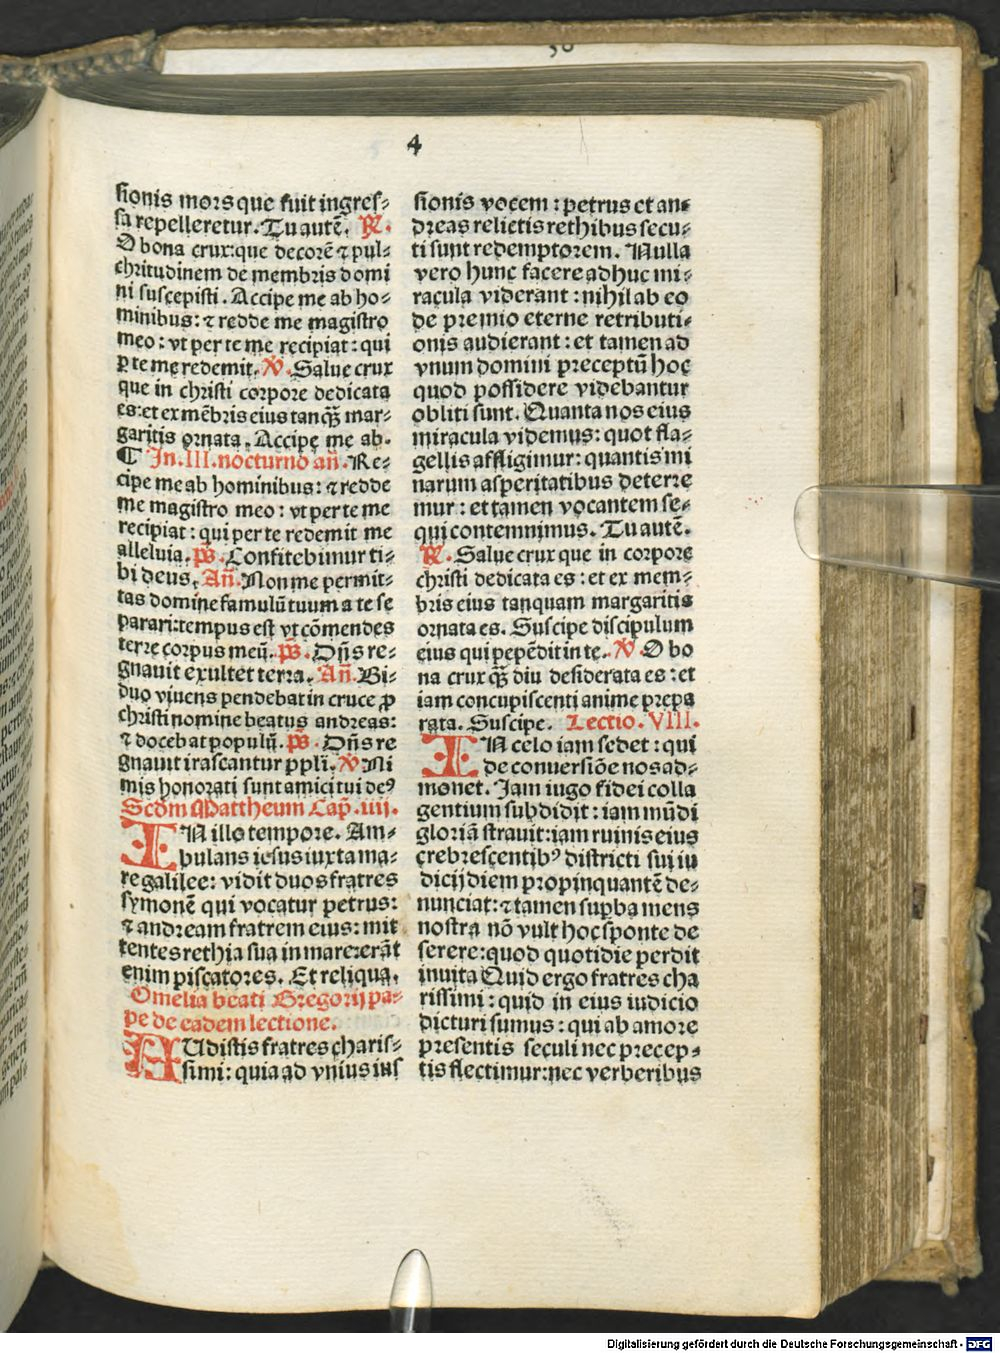 4
sionis mors que fuit ingres⸗
sa repelleretur. Tu autē. ℟.
O bona crux:que decorē ⁊ pul⸗
chritudinem de membris domi
ni suscepisti. Accipe me ab ho⸗
minibus: ⁊ redde me magistro
meo: vt per te me recipiat: qui
ꝑ te me redemit. ℣. Salue crux
que in christi corpore dedicata
es:et ex mēbris eius tanqꝫ mar⸗
garitis ornata. Accipe me ab.
¶ In.III.nocturno añ. Re⸗
cipe me ab hominibus: ⁊ redde
me magistro meo: vt per te me
recipiat: qui per te redemit me
alleluia. p̄s. Confitebimur ti⸗
bi deus. Añ. Non me permit⸗
tas domine famulū tuum a te se
parari:tempus est vt cōmendes
terre corpus meū. p̄s. Dñs re⸗
gnauit exultet terra. Añ. Bi⸗
duo viuens pendebat in cruce ꝓ
christi nomine beatus andreas:
⁊ docebat populū. p̄s. Dñs re
gnauit irascantur ppli. ℣. Ni
mis honorati sunt amici tui deꝰ
Scdm Mattheum Cap̄. iiij.
IN illo tempore. Am⸗
bulans iesus iuxta ma⸗
re galilee: vidit duos fratres
symonē qui vocatur petrus:
⁊ andream fratrem eius: mit
tentes rethia sua in mare:erāt
enim piscatores. Et reliqua.
Omelia beati Gregorij pa⸗
pe de eadem lectione.
AUdistis fratres charis⸗
simi: quia ad vnius ius
sionis vocem: petrus et an⸗
dreas relictis rethibus secu⸗
ti sunt redemptorem. Nulla
vero hunc facere adhuc mi⸗
racula viderant: nihil ab eo
de premio eterne retributi⸗
onis audierant: et tamen ad
vnum domini preceptū hoc
quod possidere videbantur
obliti sunt. Quanta nos eius
miracula videmus: quot fla⸗
gellis affligimur: quantis mi
narum asperitatibus deterre
mur: et tamen vocantem se⸗
qui contemnimus. Tu autē.
℟. Salue crux que in corpore
christi dedicata es: et ex mem⸗
bris eius tanquam margaritis
ornata es. Suscipe discipulum
eius qui pepēdit in te. ℣. O bo
na crux qꝫ diu desiderata es: et
iam concupiscenti anime prepa
rata. Suscipe. Lectio. VIII.
IN celo iam sedet: qui
de conuersiōe nos ad⸗
monet. Jam iugo fidei colla
gentium subdidit: iam mūdi
gloriā strauit:iam ruinis eius
crebrescentibꝰ districti sui iu
dicij diem propinquantē de⸗
nunciat:⁊ tamen supba mens
nostra nō vult hoc sponte de
serere:quod quotidie perdit
inuita Quid ergo fratres cha
rissimi: quid in eius iudicio
dicturi sumus: qui ab amore
presentis seculi nec precep⸗
tis flectimur:nec verberibus
Digitalisierung gefördert durch die Deutsche Forschungsgemeinschaft - DFG